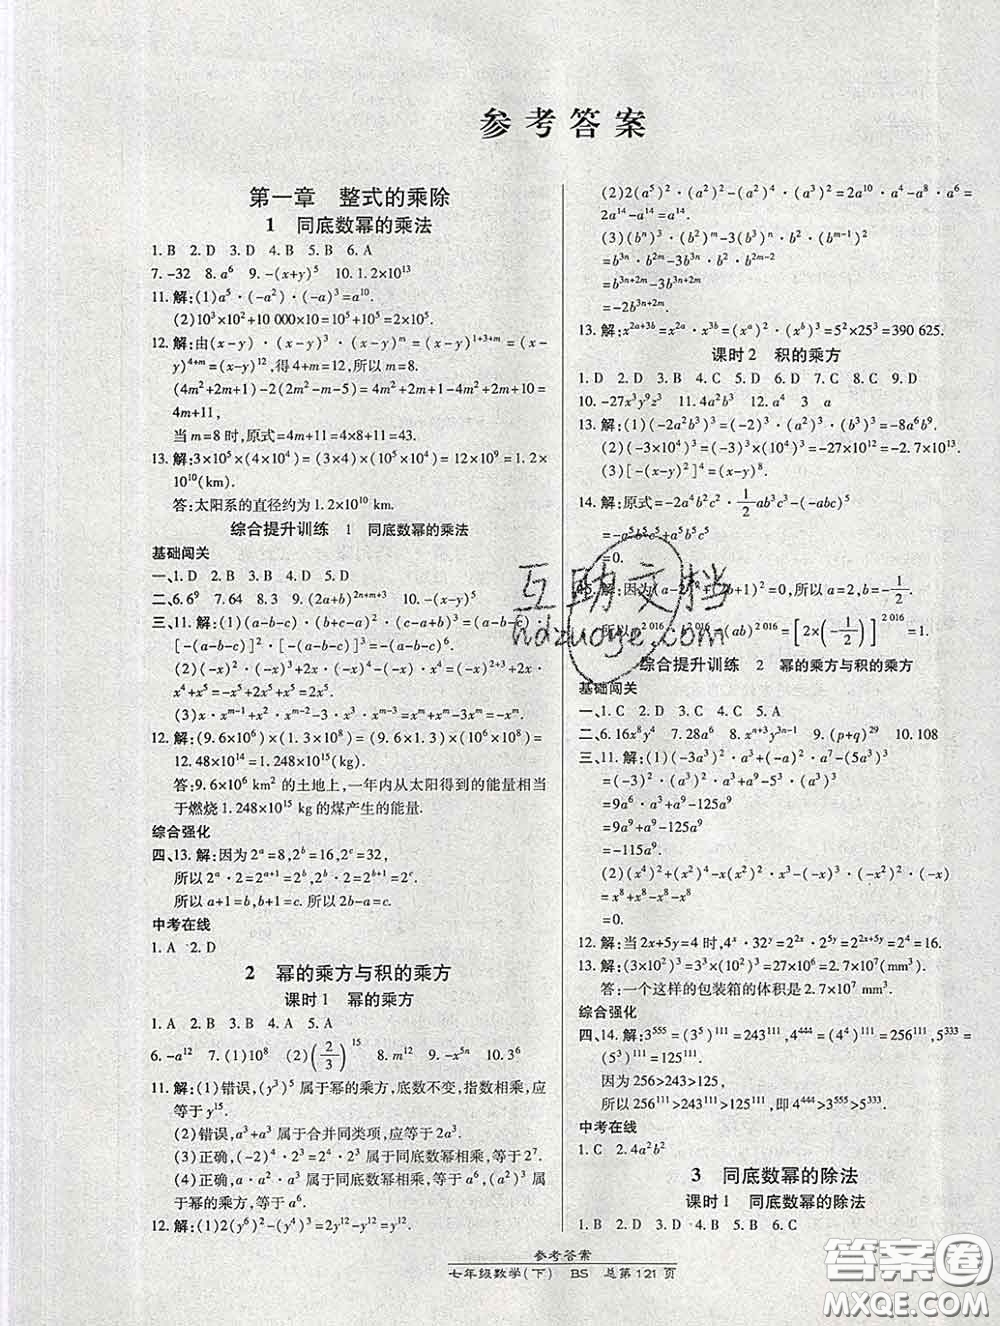 参考答案
第一章 整式的乘除
1 同底数幂的乘法
1. B 2. D 3. D 4. B 5. B 6. A
7. -32 8. a⁶ 9. -(x+y)⁵ 10. 1.2×10¹³
11. 解:(1)a⁵·(-a²)·(-a)³=a¹⁰.
(2)10³×10²+10 000×10=10⁵+10⁵=2×10⁵.
12. 解:由(x-y)·(x-y)³·(x-y)ᵐ=(x-y)¹⁺³⁺ᵐ=(x-
y)⁴⁺ᵐ=(x-y)¹²,得4+m=12,所以m=8.
(4m²+2m+1)-2(2m²-m-5)=4m²+2m+1-4m²+2m+10=
4m+11,
当m=8时,原式=4m+11=4×8+11=43.
13. 解:3×10⁵×(4×10⁴)=(3×4)×(10⁵×10⁴)=12×10⁹=1.2×
10¹⁰(km).
答:太阳系的直径约为1.2×10¹⁰ km.
综合提升训练 1 同底数幂的乘法
基础闯关
一、1. D 2. D 3. B 4. D 5. D
二、6. 6⁹ 7. 64 8. 3 9. (2a+b)²ⁿ⁺ᵐ⁺³ 10. -(x-y)⁶
三、11. 解:(1)(a-b-c)·(b+c-a)²·(c-a+b)³=(a-b-c)·
[-(a-b-c)]²·[-(a-b-c)]³=-(a-b-c)⁶.
(2)(-x)²·(-x)³+2x·(-x)⁴-(-x)·x⁴=(-x)⁵+2x·
x⁴+x⁵=-x⁵+2x⁵+x⁵=2x⁵.
(3)x·xᵐ⁻¹+x²·xᵐ⁻²-3·x³·xᵐ⁻³=xᵐ+xᵐ-3xᵐ=-xᵐ.
12. 解:(9.6×10⁶)×(1.3×10⁸)=(9.6×1.3)×(10⁶×10⁸)=
12.48×10¹⁴=1.248×10¹⁵(kg).
答:9.6×10⁶ km²的土地上,一年内从太阳得到的能量相当
于燃烧1.248×10¹⁵ kg的煤产生的能量.
综合强化
四、13. 解:因为2ᵃ=8,2ᵇ=16,2ᶜ=32,
所以2ᵃ·2=2ᵃ⁺¹=2ᵇ,2ᵇ·2=2ᵇ⁺¹=2ᶜ.
所以a+1=b,b+1=c.所以2b-a=c.
中考在线
1. A 2. D
2 幂的乘方与积的乘方
课时1 幂的乘方
1. A 2. A 3. B 4. A 5. A
6. -a¹² 7. (1)10⁸ (2)(2/3)¹⁵ 8. m¹² 9. -x⁵ⁿ 10. 3⁶
11. 解:(1)错误,(y³)⁵属于幂的乘方,底数不变,指数相乘,应
等于y¹⁵.
(2)错误,a³+a³属于合并同类项,应等于2a³.
(3)正确,(-2)⁴·2³=2⁴·2³属于同底数幂相乘,等于2⁷.
(4)正确,a²·a⁴属于同底数幂相乘,等于a⁶,(a²)³属
于幂的乘方,等于a⁶.
12. 解:(1)2(y⁶)²-(y⁴)³=2y¹²-y¹²=y¹².
(2)2(a⁵)²·(a²)²-(a²)⁴·(a²)³=2a¹⁰·a⁴-a⁸·a⁶=
2a¹⁴-a¹⁴=a¹⁴.
(3)(bⁿ)³·(b²)ᵐ-3(b³)ⁿ·b²·(bᵐ⁻¹)²
=b³ⁿ·b²ᵐ-3b³ⁿ·b²·b²ᵐ⁻²
=b³ⁿ⁺²ᵐ-3b³ⁿ⁺²ᵐ
=-2b³ⁿ⁺²ᵐ.
13. 解:x²ᵃ⁺³ᵇ=x²ᵃ·x³ᵇ=(xᵃ)²·(xᵇ)³=5²×25³=390 625.
课时2 积的乘方
1. D 2. D 3. D 4. C 5. D 6. D 7. C 8. C 9. D
10. -27x³y⁹z³ 11. 4a²b³ 12. a⁴ 3 a
13. 解:(1)(-2a²b³)³=(-2)³·(a²)³·(b³)³=-8a⁶b⁹.
(2)(-3×10⁴)³=(-3)³×(10⁴)³=-27×10¹²=-2.7×10¹³.
(3)[-(x-y)²]⁴=(x-y)⁸.
14. 解:原式=-2a⁴b²c²·½ab³c³-(-abc)⁵
=-a⁵b⁵c⁵+a⁵b⁵c⁵
=0.
15. 解:因为(a-2)²+(2b+1)²=0,所以a=2,b=-½
所以 ²⁰¹⁶ ²⁰¹⁶=(ab)²⁰¹⁶=[2×(-½)]²⁰¹⁶=1.
综合提升训练 2 幂的乘方与积的乘方
基础闯关
一、1. C 2. D 3. C 4. C 5. A
二、6. 16x⁸y⁴ 7. 28a⁶ 8. xⁿ⁺³y³ⁿ⁻¹ 9. (p+q)²⁹ 10. 108
三、11. 解:(1)(-3a³)²·a³+(-a)²·a⁷-(5a³)³
=(-3)²·(a³)²·a³+a⁹-5³·(a³)³
=9a⁶·a³+a⁹-125a⁹
=9a⁹+a⁹-125a⁹
=-115a⁹.
(2)(x⁴)²+(x²)⁴-x(x²)²·x³-(-x)³·(-x²)²·(-x)
=x⁸+x⁸-x⁸-x⁸
=0.
12. 解:当2x+5y=4时,4ˣ·32ʸ=2²ˣ·2⁵ʸ=2²ˣ⁺⁵ʸ=2⁴=16.
13. 解:(3×10²)³=3³×(10²)³=27×10⁶=2.7×10⁷(mm³).
答:一个这样的包装箱的体积是2.7×10⁷ mm³.
综合强化
四、14. 解:3⁵⁵⁵=(3⁵)¹¹¹=243¹¹¹,4⁴⁴⁴=(4⁴)¹¹¹=256¹¹¹,5³³³=
(5³)¹¹¹=125¹¹¹.
因为256>243>125,
所以256¹¹¹>243¹¹¹>125¹¹¹,即4⁴⁴⁴>3⁵⁵⁵>5³³³.
中考在线
1. C 2. 4a²b²
3 同底数幂的除法
课时1 同底数幂的除法
1. B 2. B 3. D 4. B 5. B 6. C
互助文档
hdzuoye.com
参考答案
七年级数学(下) BS 总第121页
答案圈
MXQE.COM